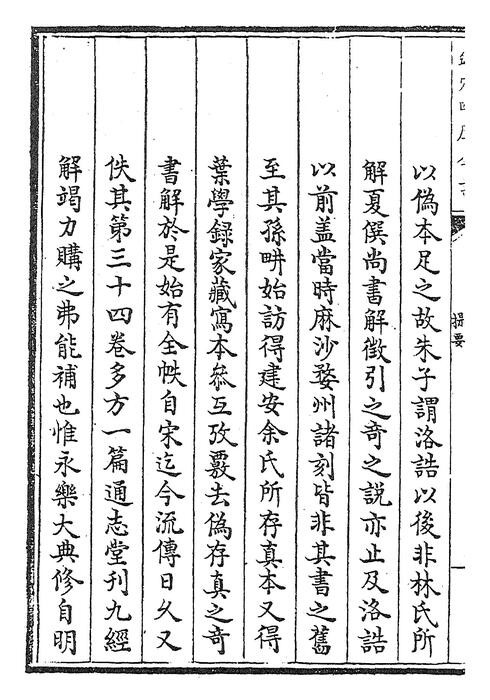 以偽本足之故朱子謂洛誥以後非林氏所
解夏僎尚書解徵引之竒之説亦止及洛誥
以前盖當時麻沙婺州諸刻皆非其書之舊
至其孫畊始訪得建安余氏所存真本又得
葉學録家藏寫本叅互攷覈去偽存真之竒
書解於是始有全帙自宋迄今流傳日乆又
佚其第三十四卷多方一篇通志堂刊九經
解竭力購之弗能補也惟永樂大典修自明
提要